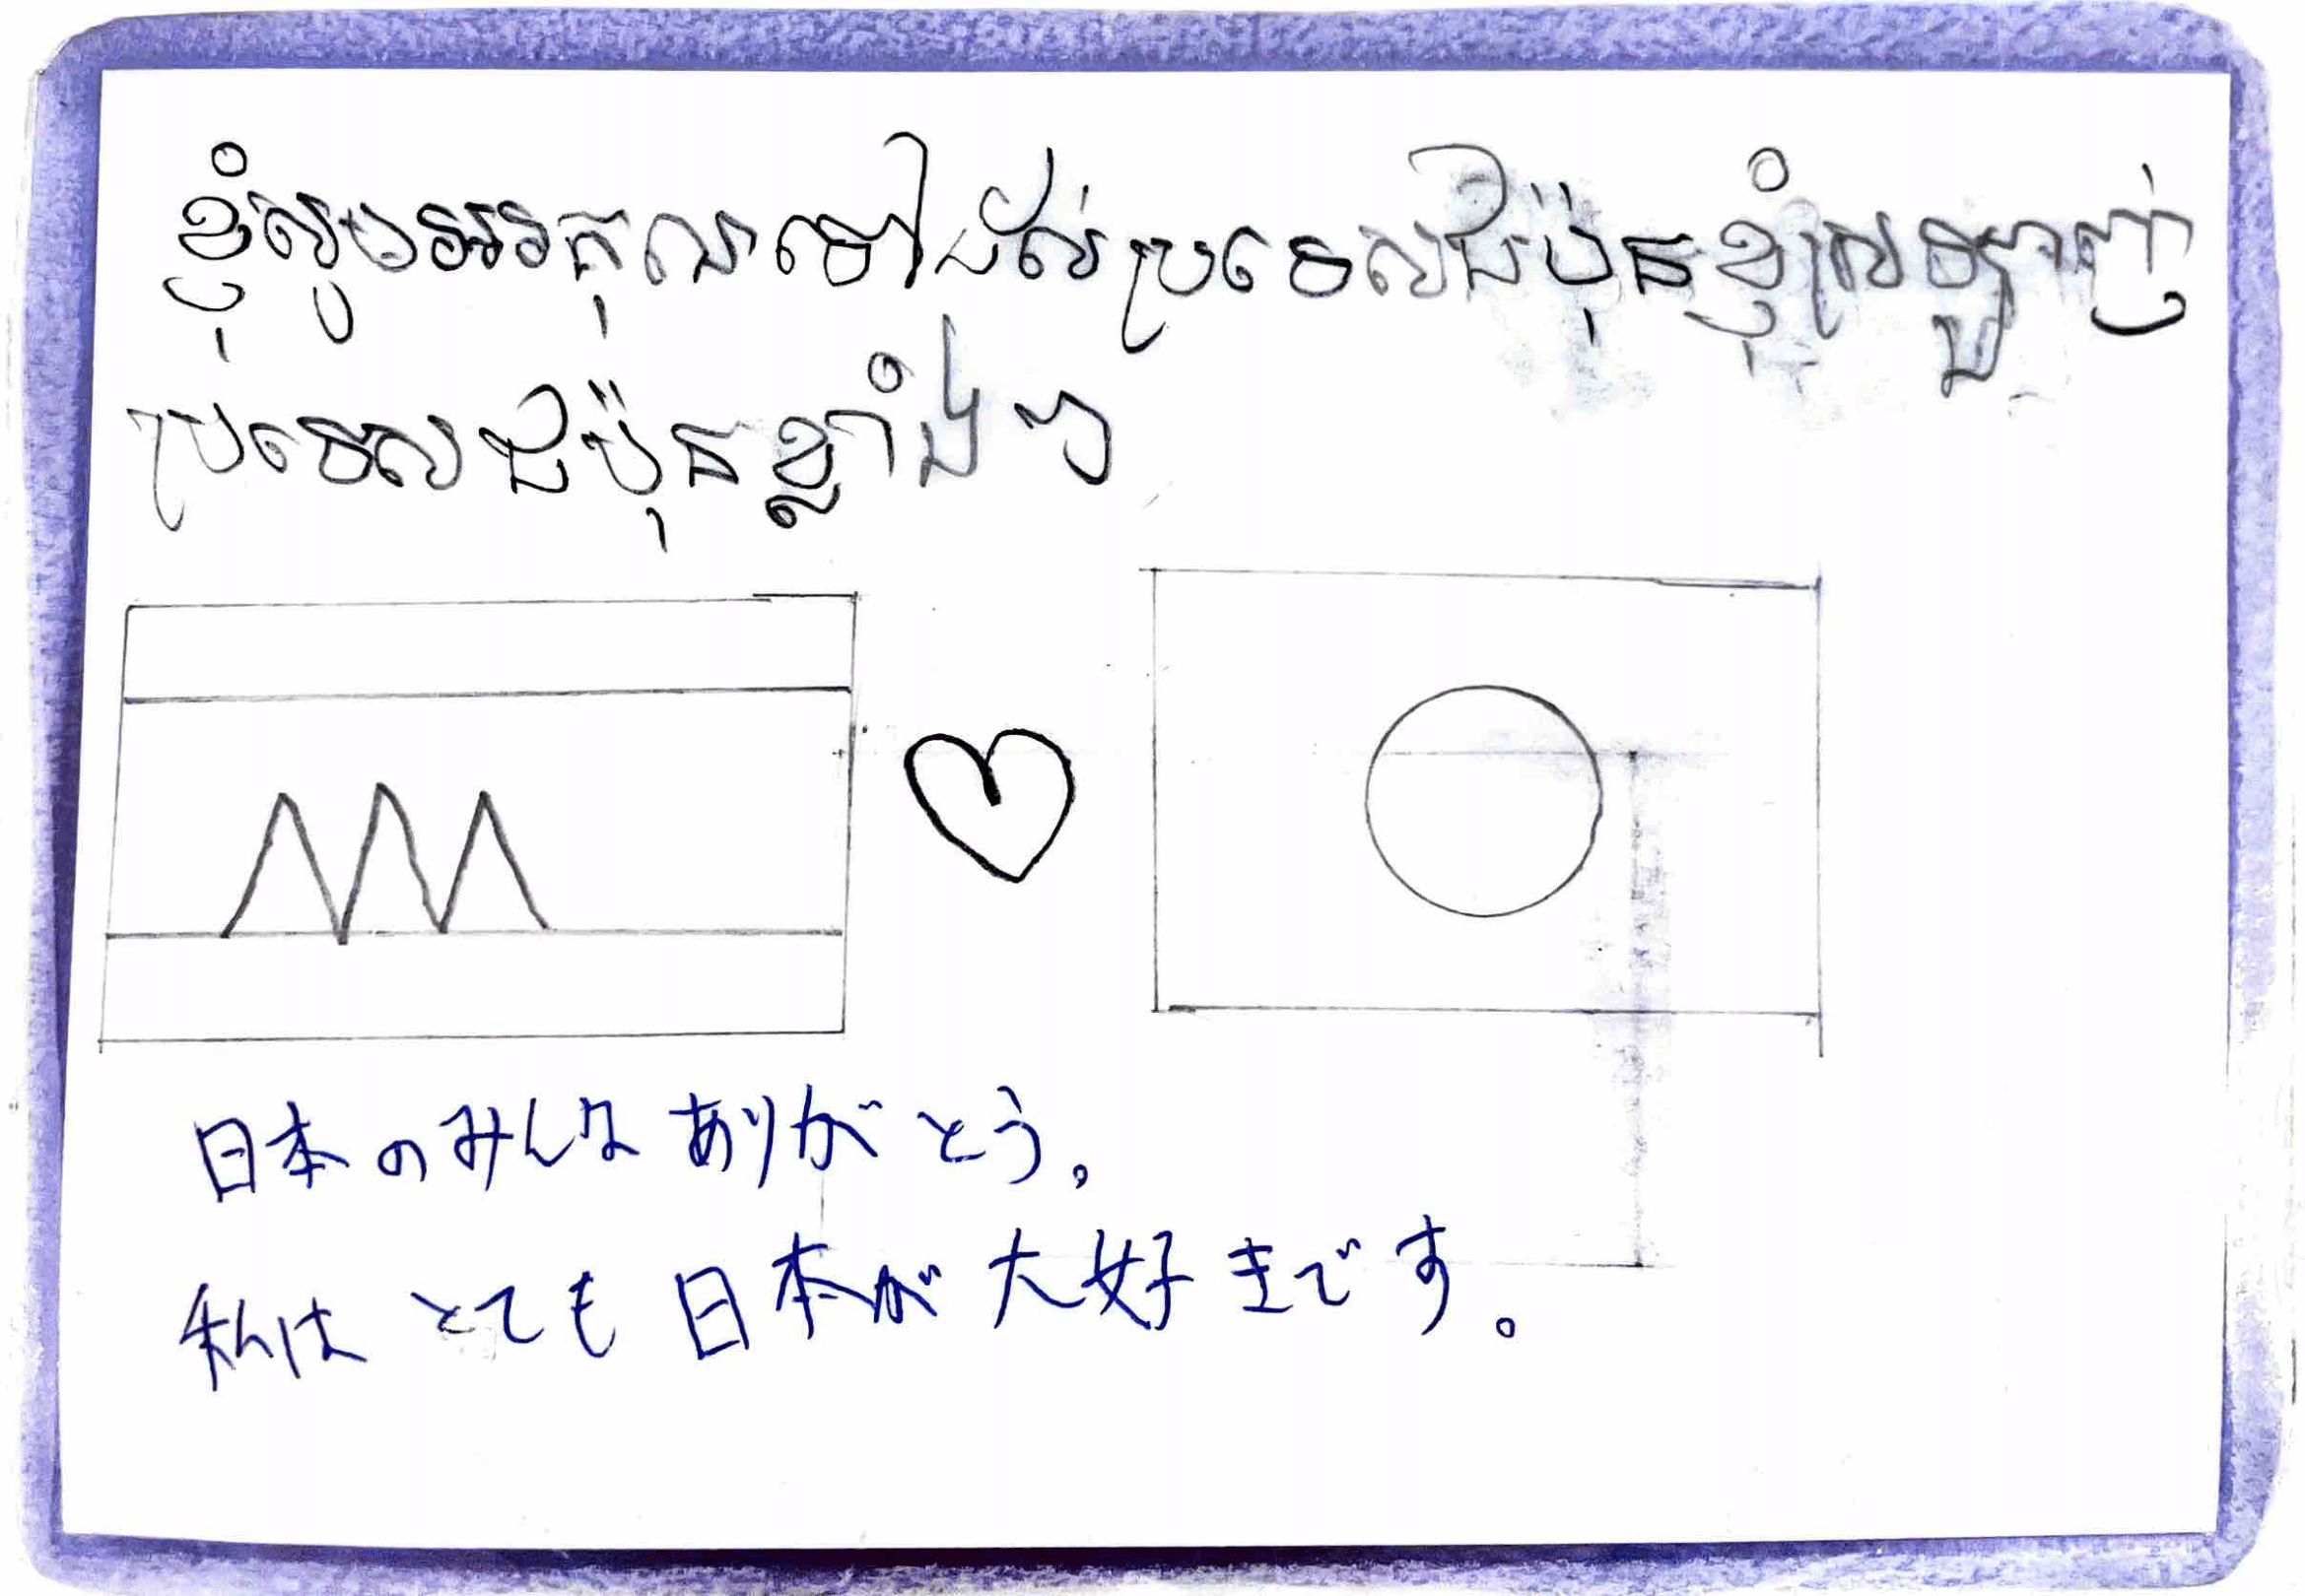 ខ្ញុំសូមអរគុណទៅដល់ប្រទេសជប៉ុនខ្ញុំស្រឡាញ់
ប្រទេសជប៉ុនខ្លាំងៗ
日本のみんなありがとう。
私はとても日本が大好きです。